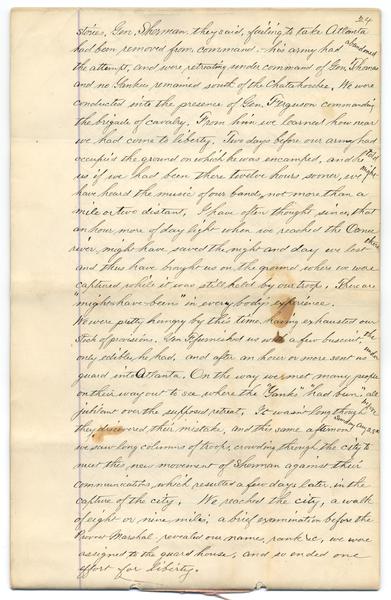 24
stories. Gen. Sherman, they said, failing to take Atlanta
had been removed from command – his army had abandoned
the attempt, and were retreating under command of Gen. Thomas
and no Yankee remained south of the Chatahoochee. We were
conducted into the presence of Gen. Ferguson commanding
the brigade of cavalry. From him we learned how near
we had come to liberty. Two days before our army had
occupied the ground on which he was encamped, and he told
us if we had been there twelve hours sooner, we might
have heard the music of our band, not more than a
mile or two distant. I have often thought since, that
an hour more of day light when we reached the Canoe
river, might have saved the night and day we lost there
and thus have brought us on the ground where we were
captured while it was still held by our troops. There are
"might have beens" in every body's experience.
We were pretty hungry by this time, having exhausted our
stock of provisions. Gen. F. furnished us with a few biscuit, the
only edibles he had, and after an hour or more sent us under
guard into Atlanta. On the way we met many people
on their way out to see where the "Yanks" had been, all
jubilant over the supposed retreat. It wasn't long though before
they discovered their mistake, and this same afternoon Sunday Aug 28th
we saw long columns of troops, crowding through the city to
meet this new movement of Sherman against their
communications, which resulted a few days later, in the
capture of the city. We reached the city, a walk
of eight or nine miles, a brief examination before the
Provost Marshal revealed our name, rank &c, we were
assigned to the guard house, and so ended one
effort for liberty.